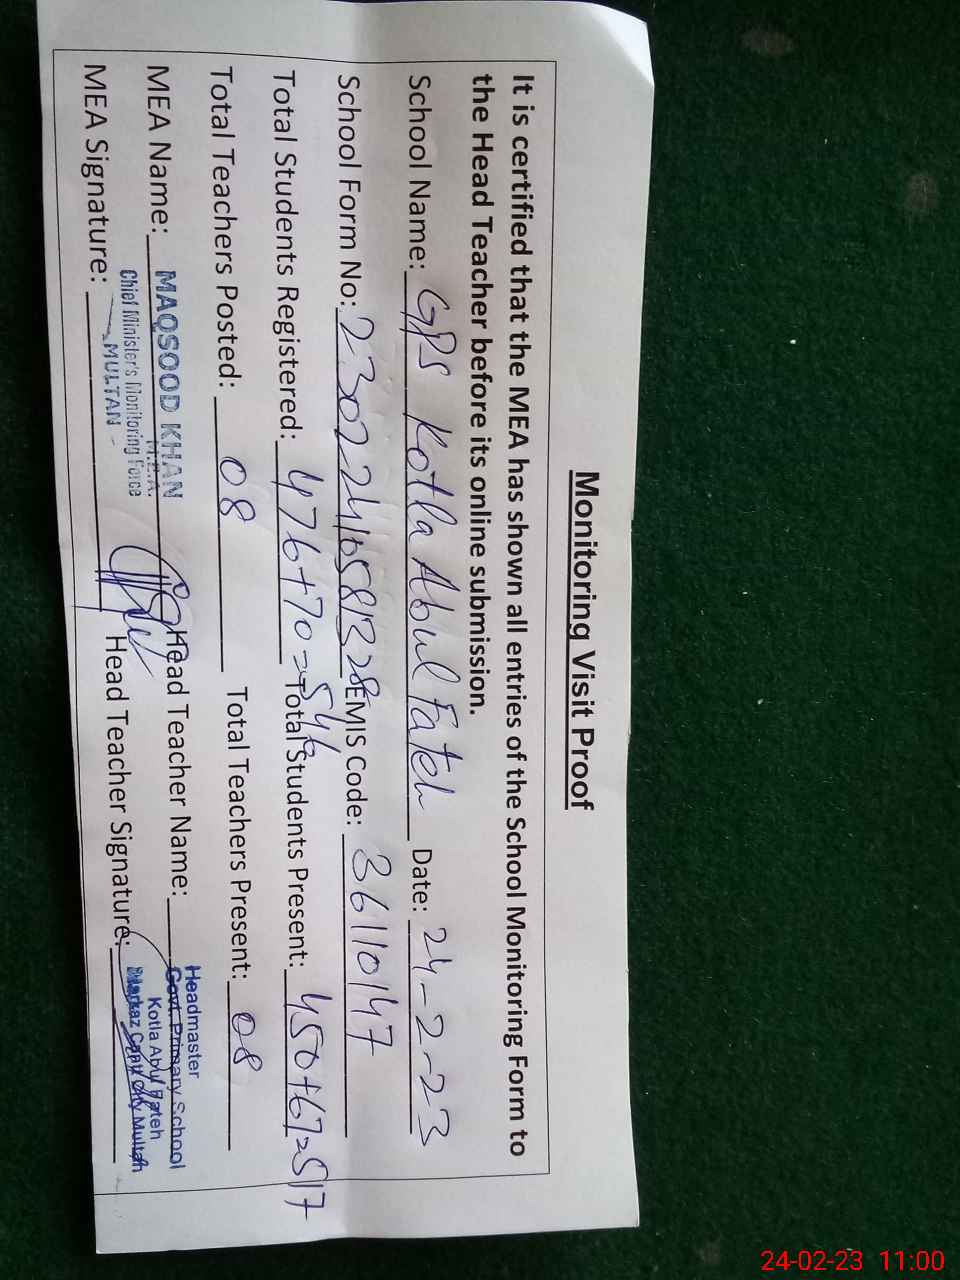 Monitoring Visit Proof
It is certified that the MEA has shown all entries of the School Monitoring Form to
the Head Teacher before its online submission.
School Name: GPS Kotla Abul Fateh Date: 24-2-23
School Form No: EMIS Code: 36110147
Total Students Registered: 476+70=546 Total Students Present: 450+67=517
Total Teachers Posted: 08 Total Teachers Present: 08
MEA Name: MAQSOOD KHAN Head Teacher Name: Headmaster
M.E.A. Govt. Primary School
Chief Minister's Monitoring Force Kotla Abul Fateh
MEA Signature: MULTAN Head Teacher Signature: Markaz City Multan
24-02-23 11:00